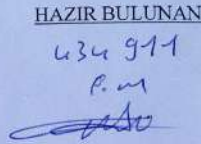 HAZIR BULUNAN
434 911
P.M